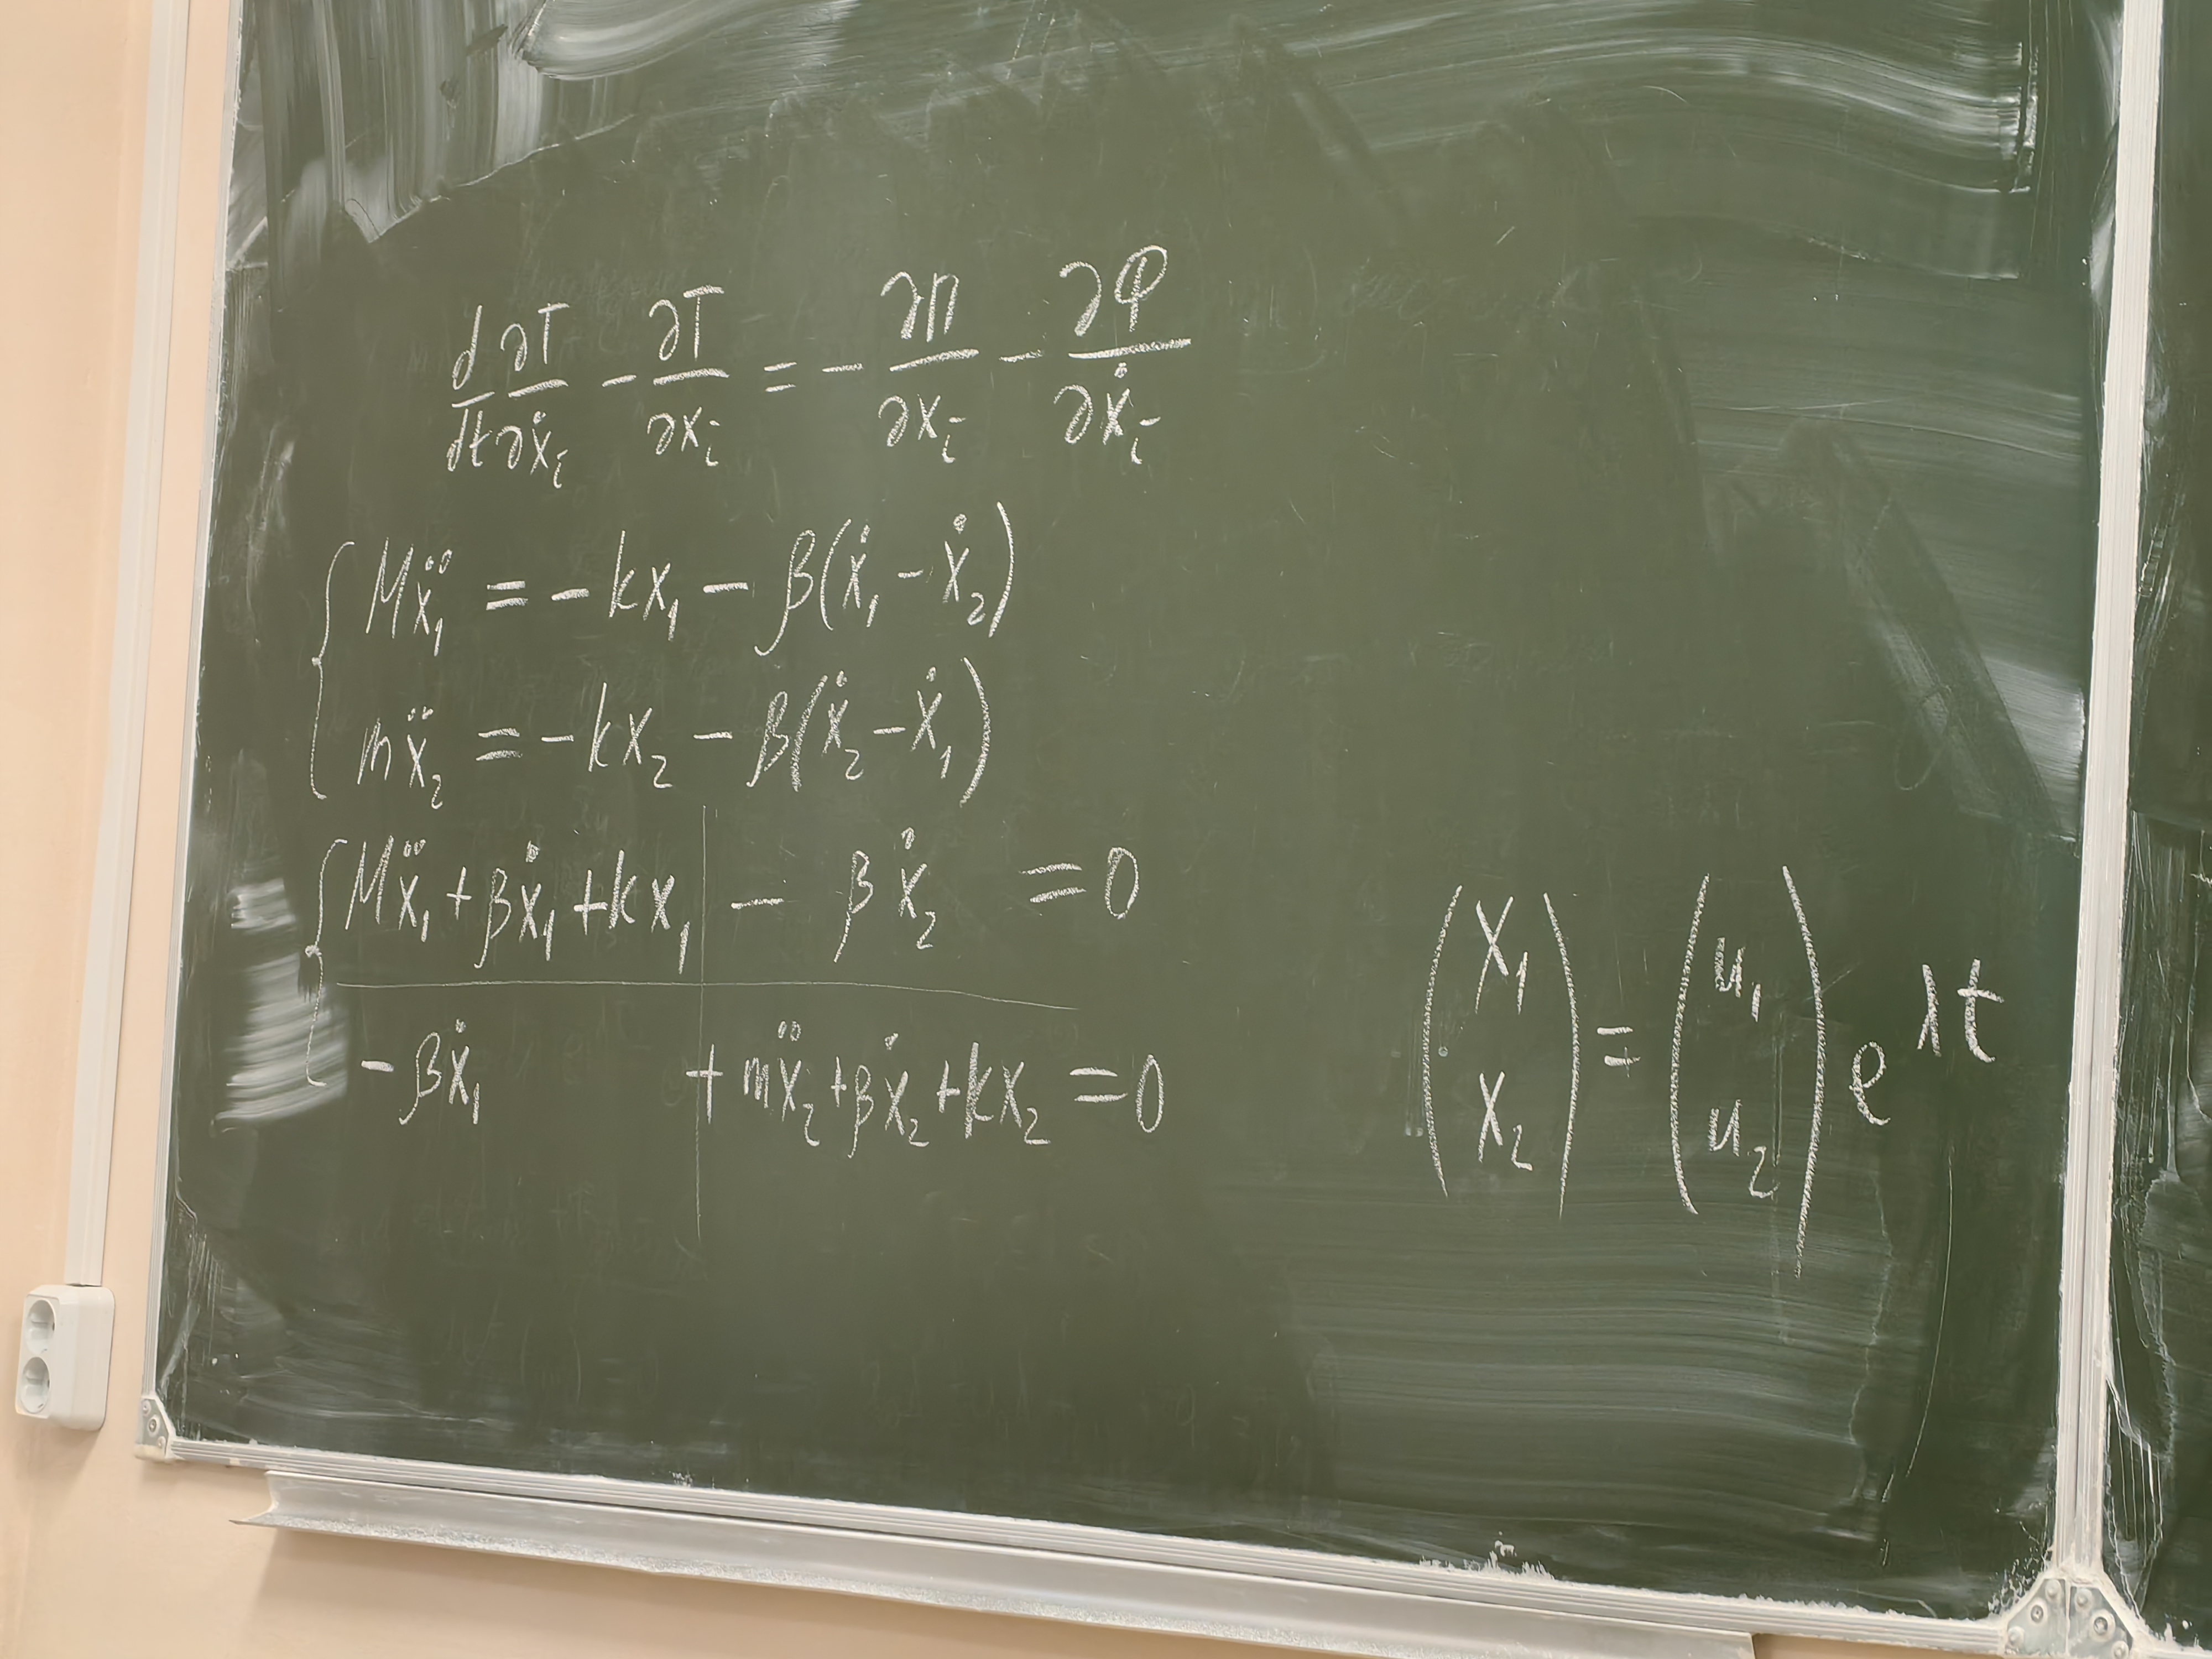 d/dt ∂T/∂ẋᵢ − ∂T/∂xᵢ = − ∂П/∂xᵢ − ∂Φ/∂ẋᵢ
Mẍ₁ = − kx₁ − β(ẋ₁ − ẋ₂)
mẍ₂ = − kx₂ − β(ẋ₂ − ẋ₁)
Mẍ₁ + βẋ₁ + kx₁ − βẋ₂ = 0
− βẋ₁ + mẍ₂ + βẋ₂ + kx₂ = 0
(x₁ x₂) = (u₁ u₂) e^λt